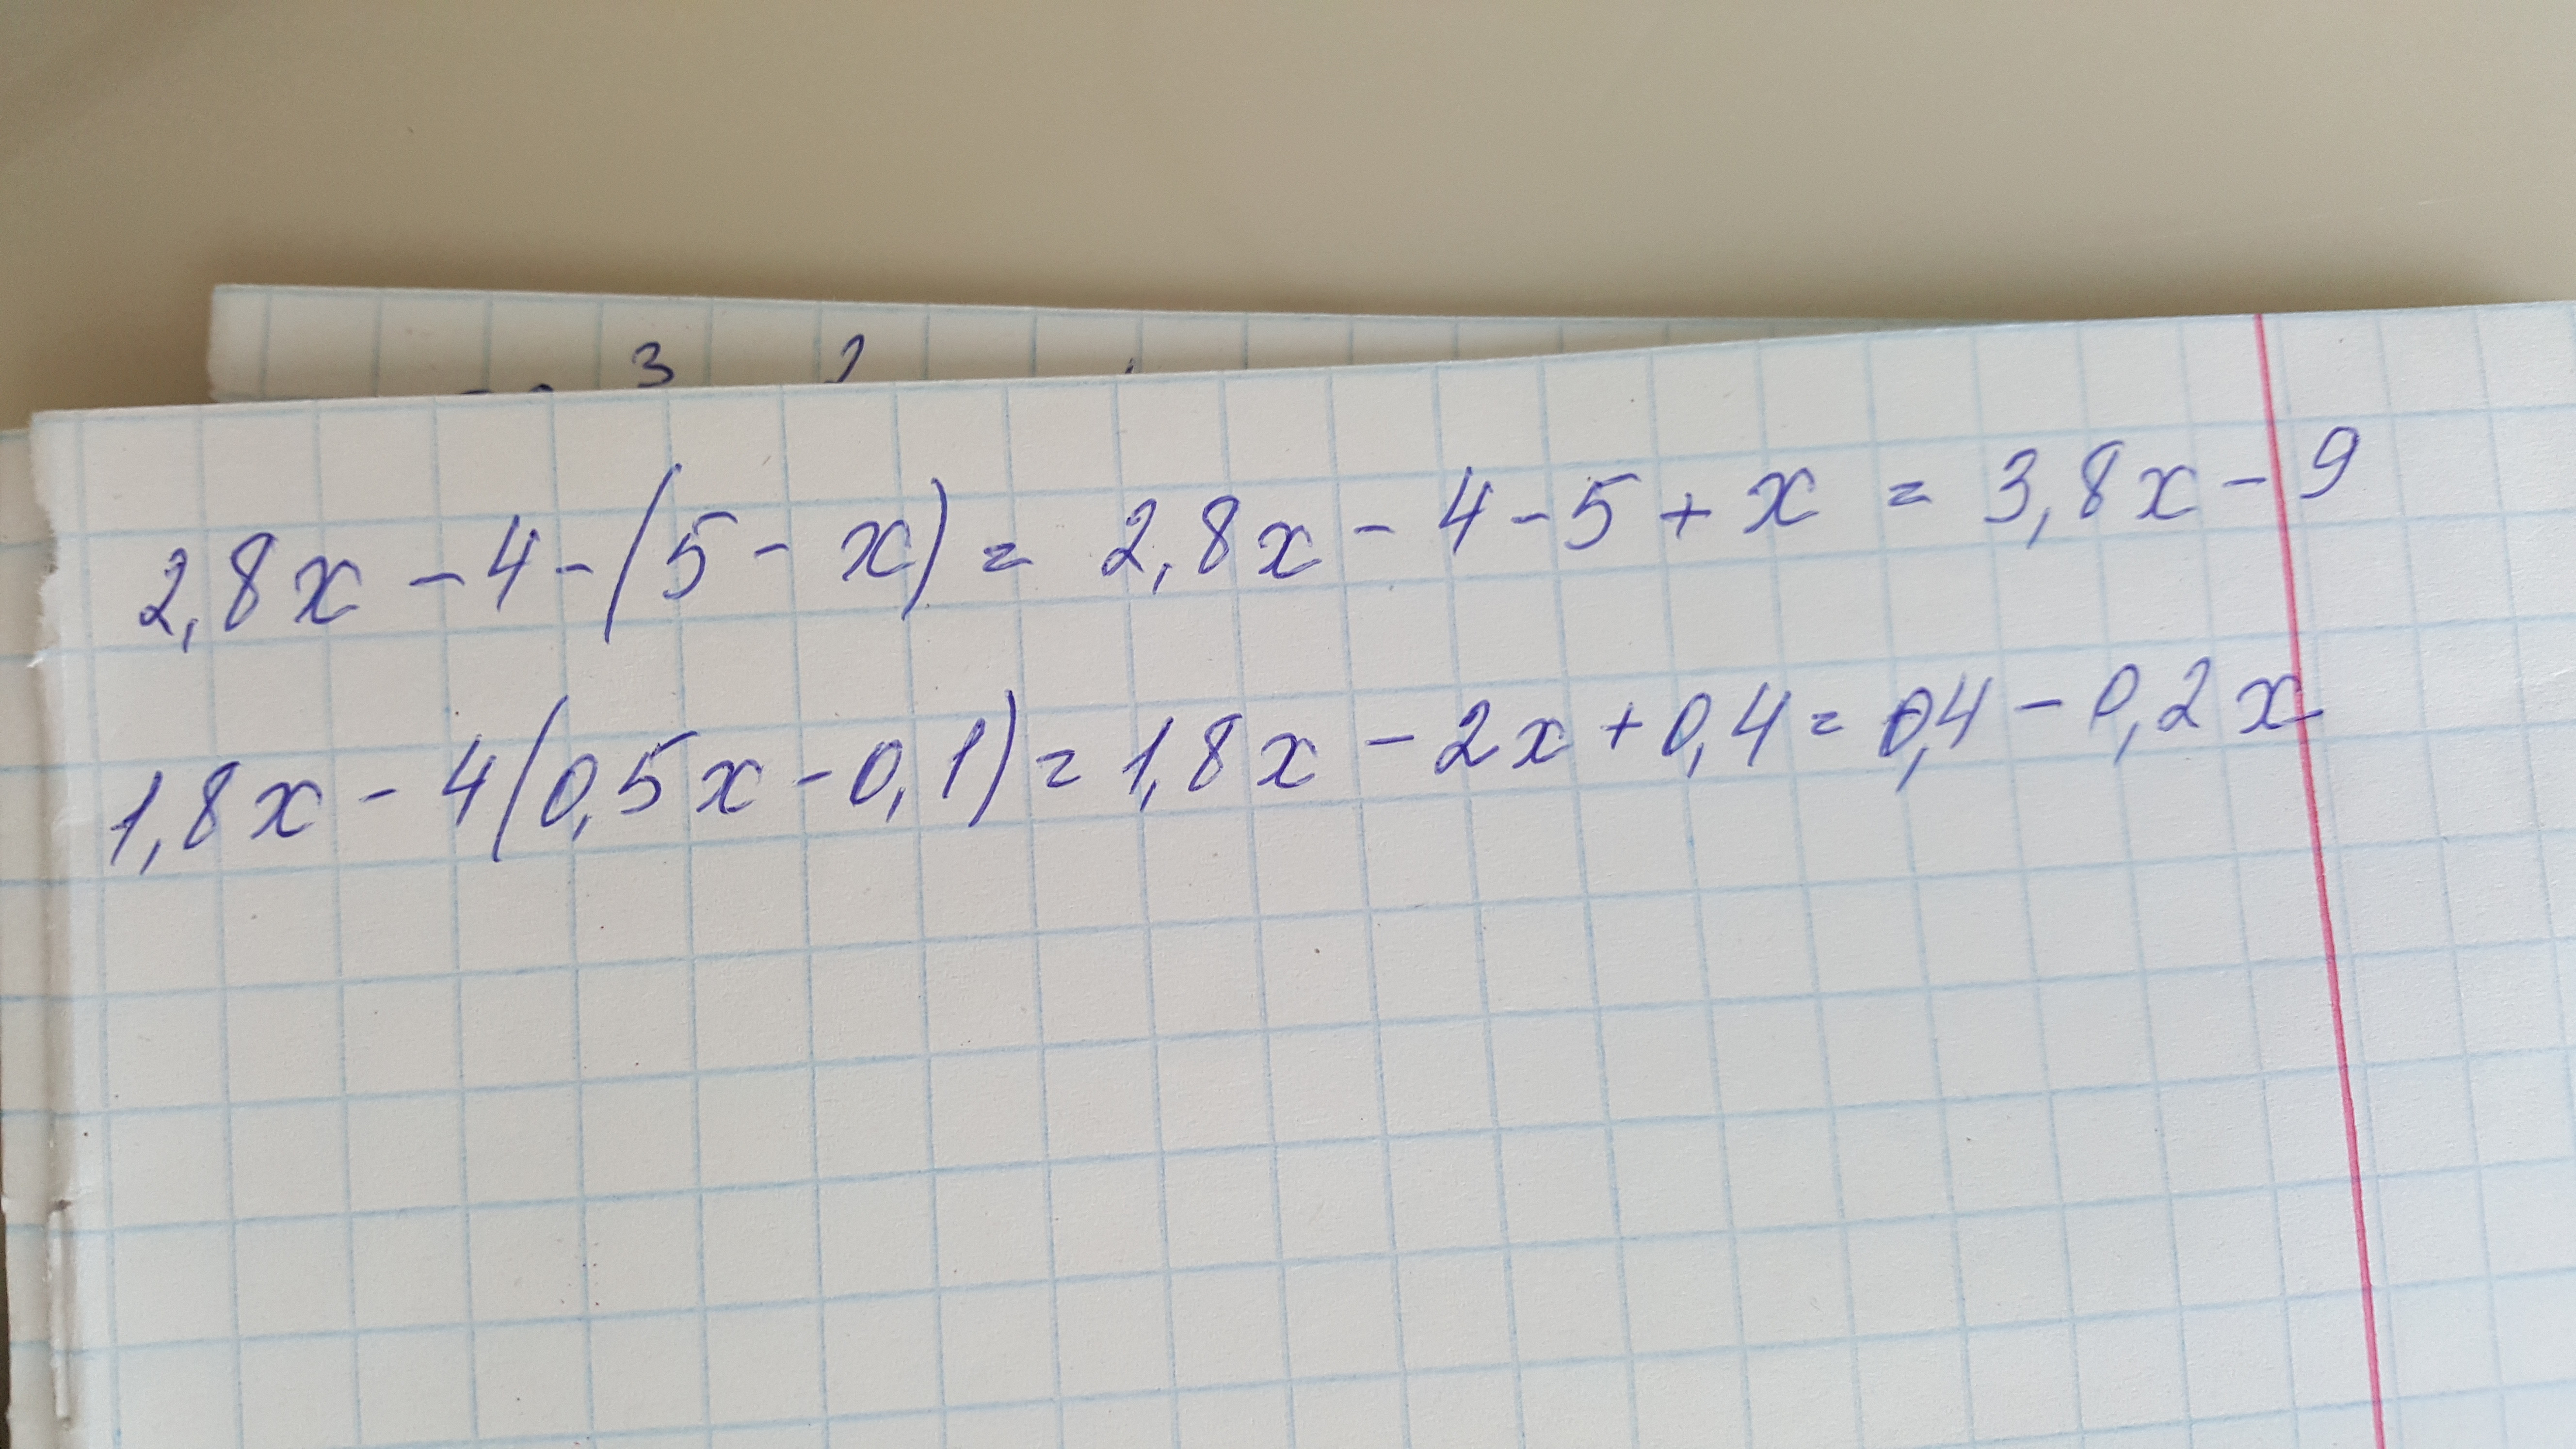 3 2
2,8x - 4 - (5 - x) = 2,8x - 4 - 5 + x = 3,8x - 9
1,8x - 4(0,5x - 0,1) = 1,8x - 2x + 0,4 = 0,4 - 0,2x